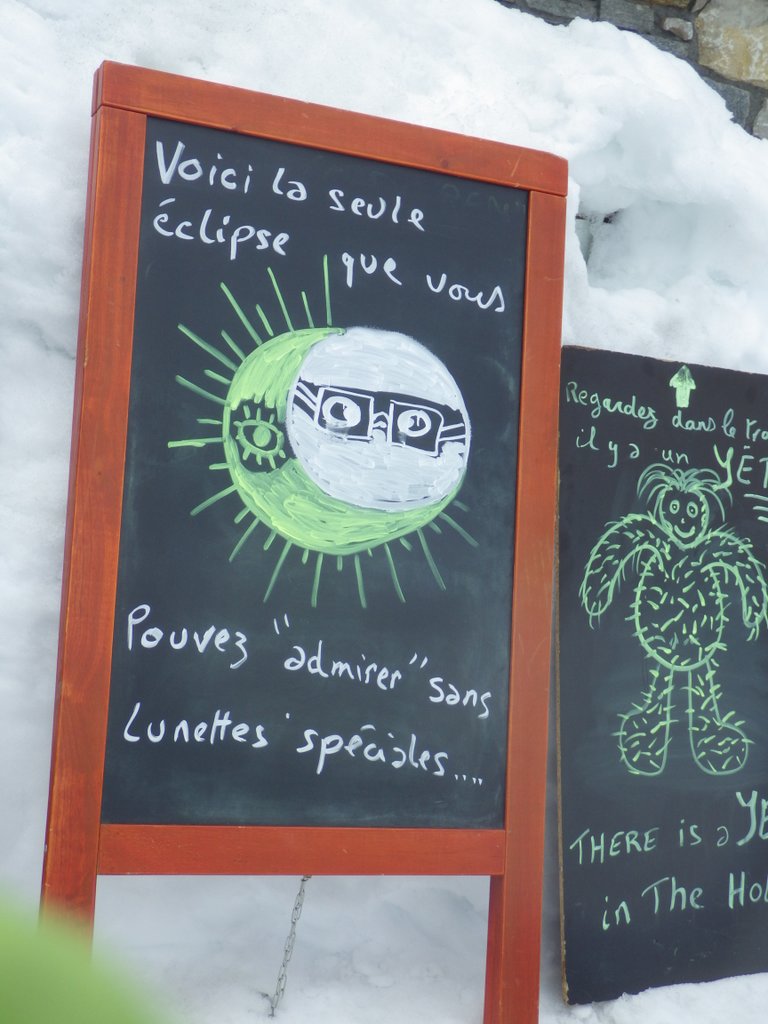 Voici la seule
éclipse que vous
Pouvez "admirer" sans
Lunettes spéciales....
Regardez dans le
il y a un
THERE is a
in The